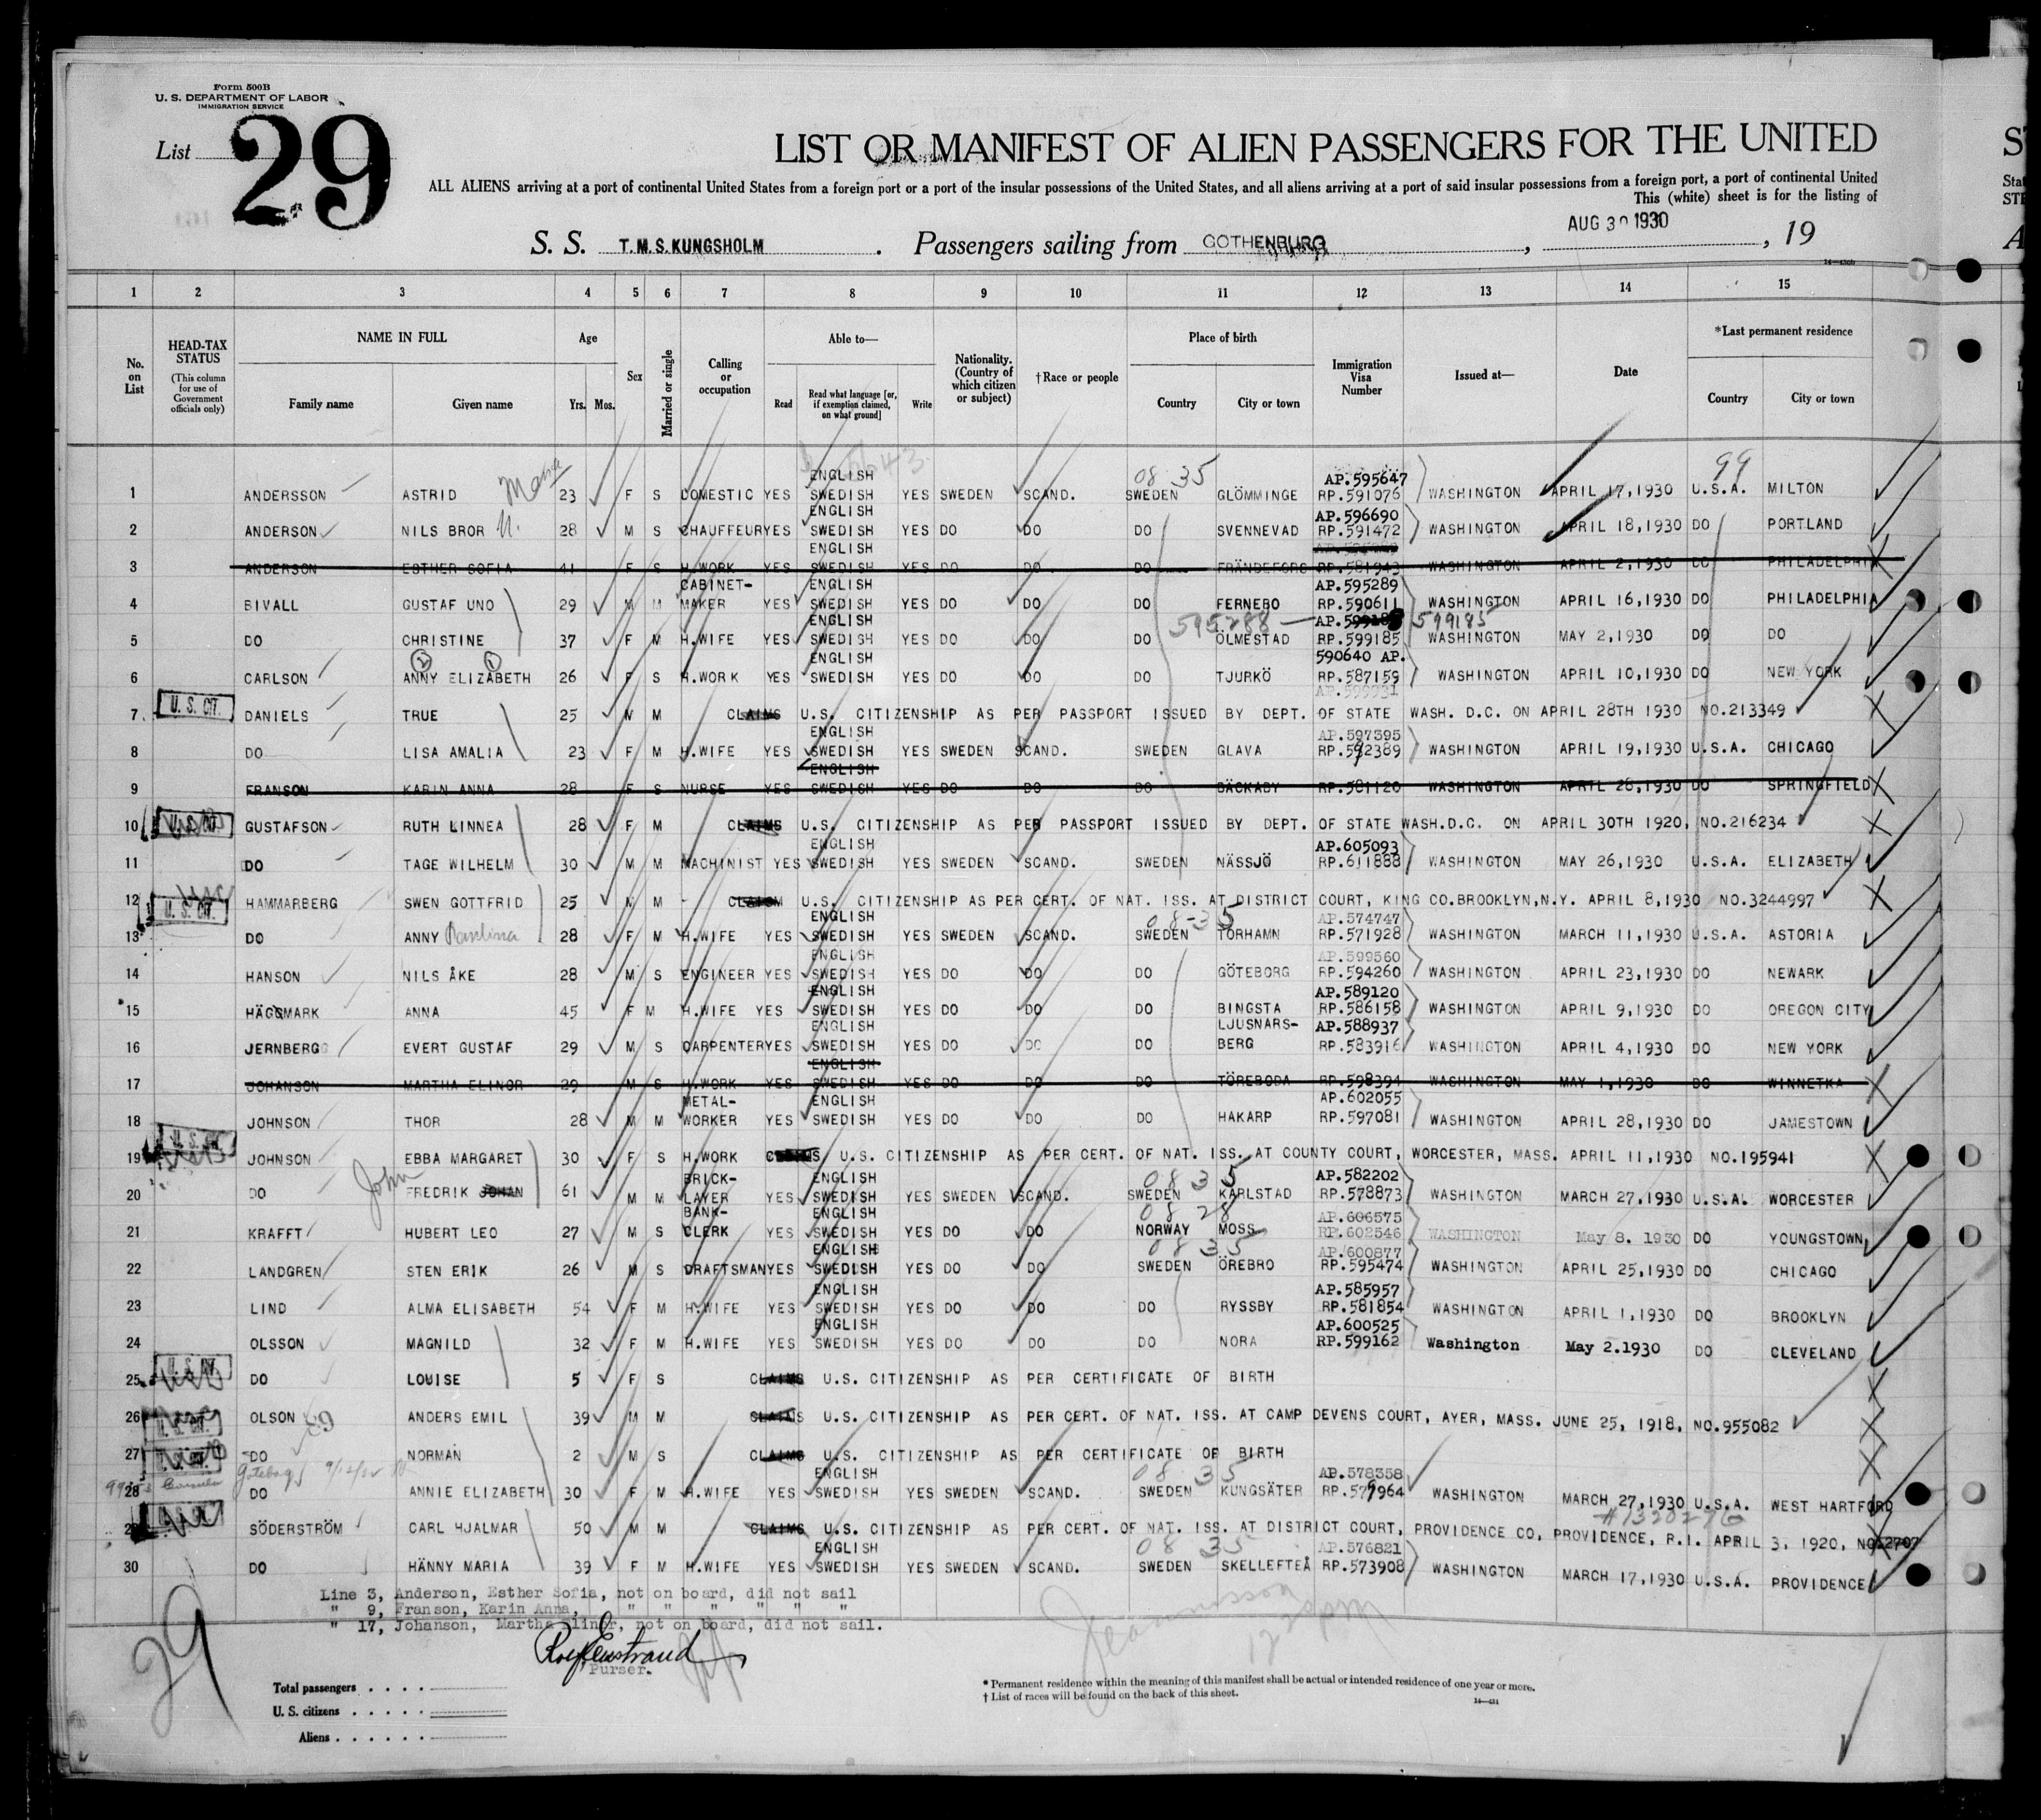 Form 500B
U. S. DEPARTMENT OF LABOR
IMMIGRATION SERVICE
List 29
LIST OR MANIFEST OF ALIEN PASSENGERS FOR THE UNITED
ALL ALIENS arriving at a port of continental United States from a foreign port or a port of the insular possessions of the United States, and all aliens arriving at a port of said insular possessions from a foreign port, a port of continental United
This (white) sheet is for the listing of
S. S. T.M.S. KUNGSHOLM . Passengers sailing from GOTHENBURG , AUG 30 1930 , 19
1 2 3 4 5 6 7 8 9 10 11 12 13 14 15
No. on List
HEAD-TAX STATUS (This column for use of Government officials only)
NAME IN FULL Family name Given name
Age Yrs. Mos.
Sex
Married or single
Calling or occupation
Able to— Read Read what language [or, if exemption claimed, on what ground] Write
Nationality. (Country of which citizen or subject)
†Race or people
Place of birth Country City or town
Immigration Visa Number
Issued at—
Date
*Last permanent residence Country City or town
1 ANDERSSON ASTRID 23 F S DOMESTIC YES ENGLISH SWEDISH YES SWEDEN SCAND. SWEDEN GLÖMMINGE AP.595647 RP.591076 WASHINGTON APRIL 17,1930 U.S.A. MILTON
2 ANDERSON NILS BROR 28 M S CHAUFFEUR YES ENGLISH SWEDISH YES DO DO DO SVENNEVAD AP.596690 RP.591472 WASHINGTON APRIL 18,1930 DO PORTLAND
3 ANDERSON ESTHER SOFIA 41 F S H.WORK YES ENGLISH SWEDISH YES DO DO DO FRÄNDEFORS RP.581943 WASHINGTON APRIL 2,1930 DO PHILADELPHIA
4 BIVALL GUSTAF UNO 29 M M CABINET-MAKER YES ENGLISH SWEDISH YES DO DO DO FERNEBO AP.595289 RP.590611 WASHINGTON APRIL 16,1930 DO PHILADELPHIA
5 DO CHRISTINE 37 F M H.WIFE YES ENGLISH SWEDISH YES DO DO DO ÖLMESTAD 595288 599185 RP.599185 WASHINGTON MAY 2,1930 DO DO
6 CARLSON ANNY ELIZABETH 26 F S H.WORK YES ENGLISH SWEDISH YES DO DO DO TJURKÖ 590640 AP. RP.587159 WASHINGTON APRIL 10,1930 DO NEW YORK
7 U.S. CIT. DANIELS TRUE 25 M M CLAIMS U.S. CITIZENSHIP AS PER PASSPORT ISSUED BY DEPT. OF STATE WASH. D.C. ON APRIL 28TH 1930 NO.213349
8 DO LISA AMALIA 23 F M H.WIFE YES ENGLISH SWEDISH YES SWEDEN SCAND. SWEDEN GLAVA AP.597395 RP.592389 WASHINGTON APRIL 19,1930 U.S.A. CHICAGO
9 FRANSON KARIN ANNA 28 F S NURSE YES ENGLISH SWEDISH YES DO DO DO BÄCKABY RP.581120 WASHINGTON APRIL 28,1930 DO SPRINGFIELD
10 GUSTAFSON RUTH LINNEA 28 F M CLAIMS U.S. CITIZENSHIP AS PER PASSPORT ISSUED BY DEPT. OF STATE WASH.D.C. ON APRIL 30TH 1920, NO.216234
11 DO TAGE WILHELM 30 M M MACHINIST YES ENGLISH SWEDISH YES SWEDEN SCAND. SWEDEN NÄSSJÖ AP.605093 RP.611888 WASHINGTON MAY 26,1930 U.S.A. ELIZABETH
12 U.S. CIT. HAMMARBERG SWEN GOTTFRID 25 M M U.S. CITIZENSHIP AS PER CERT. OF NAT. ISS. AT DISTRICT COURT, KING CO.BROOKLYN,N.Y. APRIL 8,1930 NO.3244997
13 DO ANNY 28 F M H.WIFE YES ENGLISH SWEDISH YES SWEDEN SCAND. SWEDEN TORHAMN AP.574747 RP.571928 WASHINGTON MARCH 11,1930 U.S.A. ASTORIA
14 HANSON NILS ÅKE 28 M S ENGINEER YES ENGLISH SWEDISH YES DO DO DO GÖTEBORG AP.599560 RP.594260 WASHINGTON APRIL 23,1930 DO NEWARK
15 HÄGGMARK ANNA 45 F M H.WIFE YES ENGLISH SWEDISH YES DO DO DO BINGSTA AP.589120 RP.586158 WASHINGTON APRIL 9,1930 DO OREGON CITY
16 JERNBERG EVERT GUSTAF 29 M S CARPENTER YES ENGLISH SWEDISH YES DO DO DO LJUSNARS-BERG AP.588937 RP.583916 WASHINGTON APRIL 4,1930 DO NEW YORK
17 JOHANSON MARTHA ELINOR 29 M S H.WORK YES ENGLISH SWEDISH YES DO DO DO TÖREBODA RP.598394 WASHINGTON MAY 1,1930 DO WINNETKA
18 JOHNSON THOR 28 M M METAL-WORKER YES ENGLISH SWEDISH YES DO DO DO HAKARP AP.602055 RP.597081 WASHINGTON APRIL 28,1930 DO JAMESTOWN
19 JOHNSON EBBA MARGARET 30 F S H.WORK CLAIMS U.S. CITIZENSHIP AS PER CERT. OF NAT. ISS. AT COUNTY COURT, WORCESTER, MASS. APRIL 11,1930 NO.195941
20 DO John FREDRIK JOHAN 61 M M BRICK-LAYER YES ENGLISH SWEDISH YES SWEDEN SCAND. SWEDEN KARLSTAD AP.582202 RP.578873 WASHINGTON MARCH 27,1930 U.S.A. WORCESTER
21 KRAFFT HUBERT LEO 27 M S BANK-CLERK YES ENGLISH SWEDISH YES DO DO NORWAY MOSS AP.606575 RP.602546 WASHINGTON May 8. 1930 DO YOUNGSTOWN
22 LANDGREN STEN ERIK 26 M S DRAFTSMAN YES ENGLISH SWEDISH YES DO DO SWEDEN ÖREBRO AP.600877 RP.595474 WASHINGTON APRIL 25,1930 DO CHICAGO
23 LIND ALMA ELISABETH 54 F M H.WIFE YES ENGLISH SWEDISH YES DO DO DO RYSSBY AP.585957 RP.581854 WASHINGTON APRIL 1,1930 DO BROOKLYN
24 OLSSON MAGNILD 32 F M H.WIFE YES ENGLISH SWEDISH YES DO DO DO NORA AP.600525 RP.599162 Washington May 2.1930 DO CLEVELAND
25 DO LOUISE 5 F S CLAIMS U.S. CITIZENSHIP AS PER CERTIFICATE OF BIRTH
26 OLSON ANDERS EMIL 39 M M CLAIMS U.S. CITIZENSHIP AS PER CERT. OF NAT. ISS. AT CAMP DEVENS COURT, AYER, MASS. JUNE 25, 1918, NO.955082
27 DO NORMAN 2 M S CLAIMS U.S. CITIZENSHIP AS PER CERTIFICATE OF BIRTH
28 DO ANNIE ELIZABETH 30 F M H.WIFE YES ENGLISH SWEDISH YES SWEDEN SCAND. SWEDEN KUNGSÄTER AP.578358 RP.579964 WASHINGTON MARCH 27,1930 U.S.A. WEST HARTFORD
29 SÖDERSTRÖM CARL HJALMAR 50 M M CLAIMS U.S. CITIZENSHIP AS PER CERT. OF NAT. ISS. AT DISTRICT COURT, PROVIDENCE CO, PROVIDENCE, R.I. APRIL 3, 1920, NO.2707
30 DO HÄNNY MARIA 39 F M H.WIFE YES ENGLISH SWEDISH YES SWEDEN SCAND. SWEDEN SKELLEFTEÅ AP.576821 RP.573908 WASHINGTON MARCH 17,1930 U.S.A. PROVIDENCE
Line 3, Anderson, Esther Sofia, not on board, did not sail
" 9, Franson, Karin Anna, " " " " " "
" 17, Johanson, Martha Elinor, not on board, did not sail.
Purser.
29
Total passengers . . . .
U. S. citizens . . . . .
Aliens . . . . . .
* Permanent residence within the meaning of this manifest shall be actual or intended residence of one year or more.
† List of races will be found on the back of this sheet.
14—431